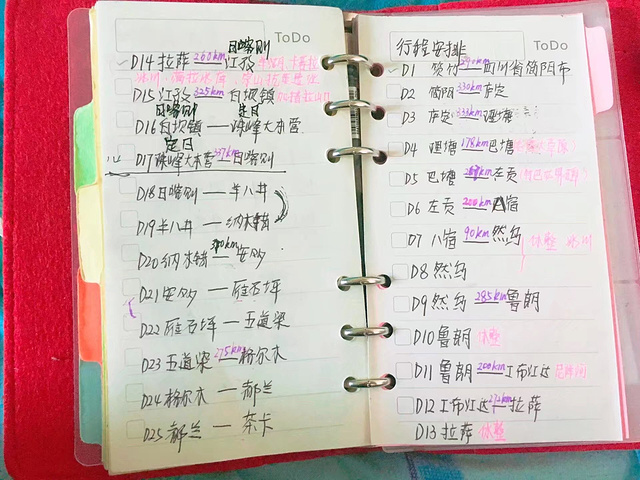 ToDo
日喀则
D14 拉萨 260km 江孜
D15 江孜 325km 白坝镇 加措拉山口
日喀则 定日
D16 白坝镇 — 珠峰大本营
定日
D17 珠峰大本营 — 日喀则
D18 日喀则 — 羊八井
D19 羊八井 — 纳木错
D20 纳木错 — 安多
D21 安多 — 雁石坪
D22 雁石坪 — 五道梁
D23 五道梁 275km 格尔木
D24 格尔木 — 都兰
D25 都兰 — 茶卡
行程安排 ToDo
D1 — 四川省简阳市
D2 简阳 330km 康定
D3 康定 理塘
D4 理塘 178km 巴塘
D5 巴塘 左贡
D6 左贡 200km 八宿
D7 八宿 90km 然乌 休整 冰川
D8 然乌
D9 然乌 285km 鲁朗
D10 鲁朗 休整
D11 鲁朗 200km 工布江达
D12 工布江达 拉萨
D13 拉萨 休整